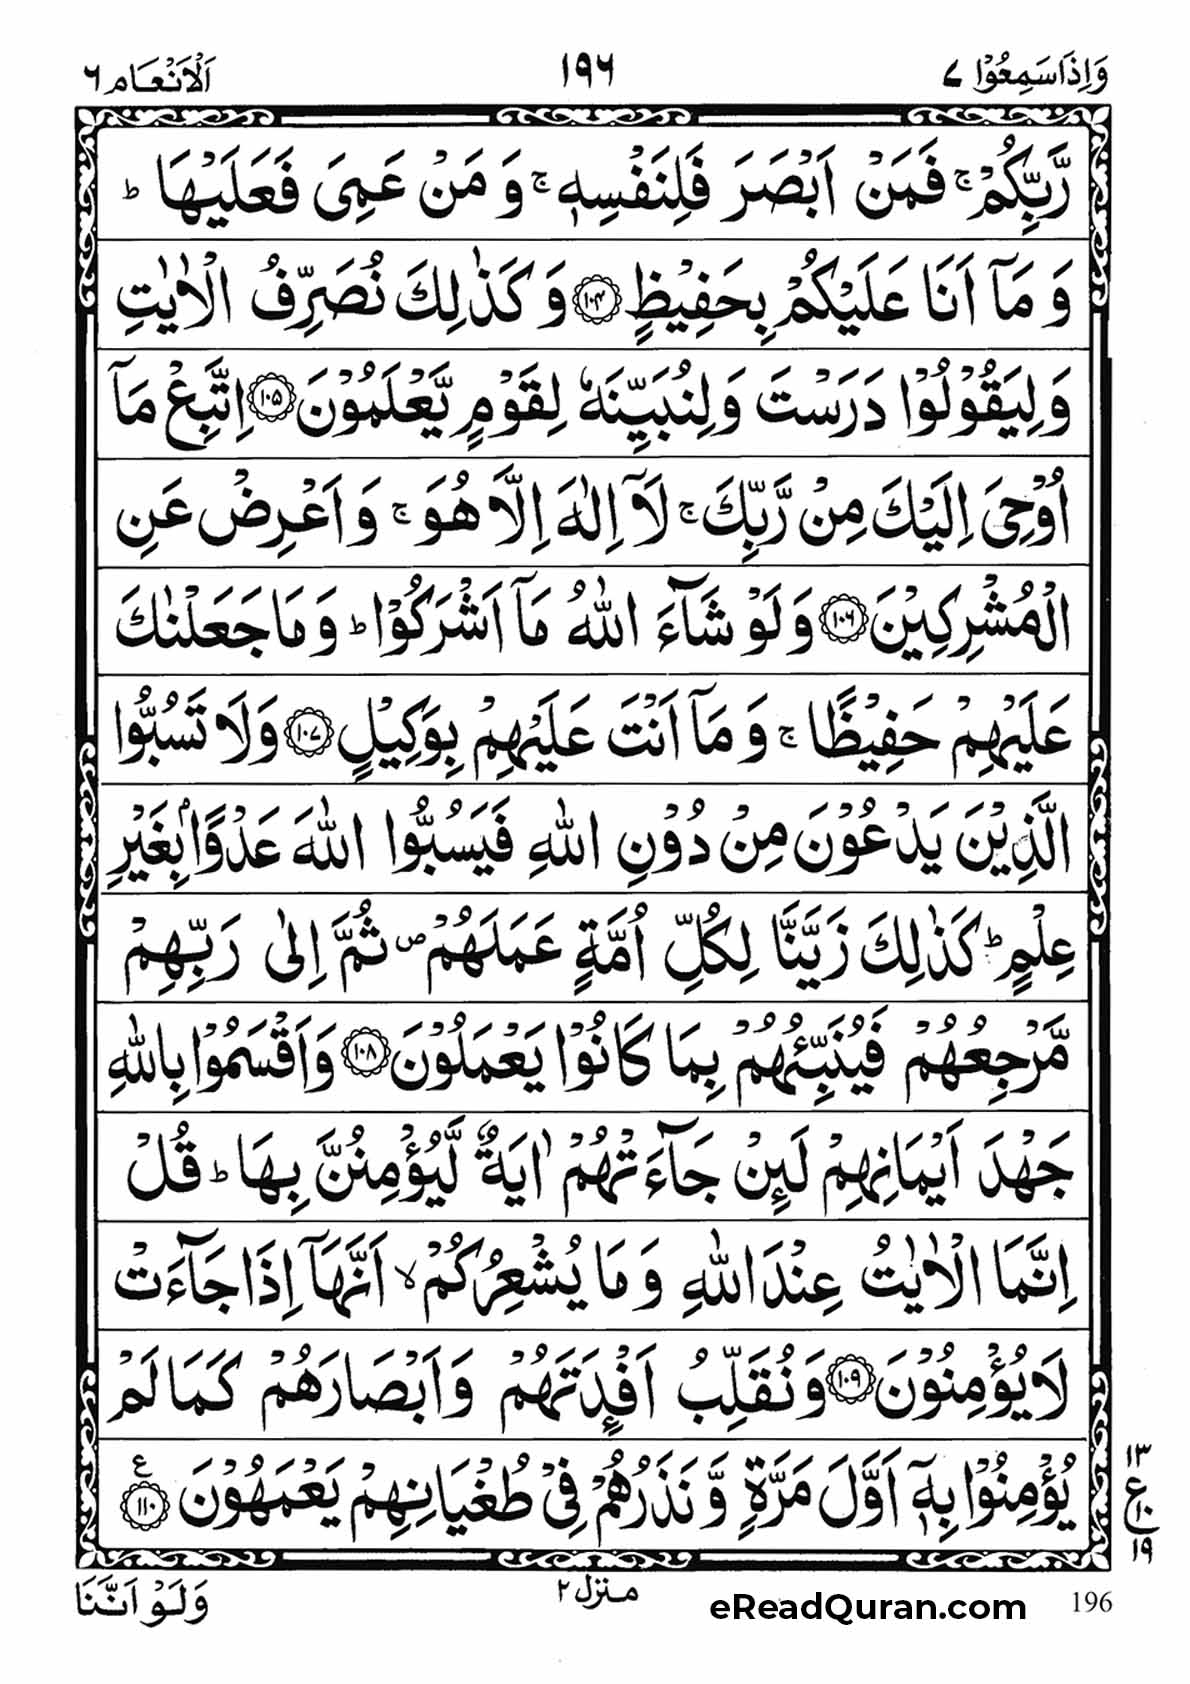 وَاِذَاسَمِعُوْا ۷
۱۹۶
اَلْاَنْعَام ۶
رَّبِّكُمْ ۚ فَمَنْ اَبْصَرَ فَلِنَفْسِهٖ ۚ وَ مَنْ عَمِیَ فَعَلَیْهَا ؕ
وَ مَاۤ اَنَا عَلَیْكُمْ بِحَفِیْظٍ ﴿۱۰۴﴾ وَ كَذٰلِكَ نُصَرِّفُ الْاٰیٰتِ
وَ لِیَقُوْلُوْا دَرَسْتَ وَ لِنُبَیِّنَهٗ لِقَوْمٍ یَّعْلَمُوْنَ ﴿۱۰۵﴾ اِتَّبِعْ مَاۤ
اُوْحِیَ اِلَیْكَ مِنْ رَّبِّكَ ۚ لَاۤ اِلٰهَ اِلَّا هُوَ ۚ وَ اَعْرِضْ عَنِ
الْمُشْرِكِیْنَ ﴿۱۰۶﴾ وَ لَوْ شَآءَ اللّٰهُ مَاۤ اَشْرَكُوْا ؕ وَ مَا جَعَلْنٰكَ
عَلَیْهِمْ حَفِیْظًا ۚ وَ مَاۤ اَنْتَ عَلَیْهِمْ بِوَكِیْلٍ ﴿۱۰۷﴾ وَ لَا تَسُبُّوا
الَّذِیْنَ یَدْعُوْنَ مِنْ دُوْنِ اللّٰهِ فَیَسُبُّوا اللّٰهَ عَدْوًۢا بِغَیْرِ
عِلْمٍ ؕ كَذٰلِكَ زَیَّنَّا لِكُلِّ اُمَّةٍ عَمَلَهُمْ ۪ ثُمَّ اِلٰی رَبِّهِمْ
مَّرْجِعُهُمْ فَیُنَبِّئُهُمْ بِمَا كَانُوْا یَعْمَلُوْنَ ﴿۱۰۸﴾ وَ اَقْسَمُوْا بِاللّٰهِ
جَهْدَ اَیْمَانِهِمْ لَئِنْ جَآءَتْهُمْ اٰیَةٌ لَّیُؤْمِنُنَّ بِهَا ؕ قُلْ
اِنَّمَا الْاٰیٰتُ عِنْدَ اللّٰهِ وَ مَا یُشْعِرُكُمْ ۙ اَنَّهَاۤ اِذَا جَآءَتْ
لَا یُؤْمِنُوْنَ ﴿۱۰۹﴾ وَ نُقَلِّبُ اَفْـِٕدَتَهُمْ وَ اَبْصَارَهُمْ كَمَا لَمْ
یُؤْمِنُوْا بِهٖۤ اَوَّلَ مَرَّةٍ وَّ نَذَرُهُمْ فِیْ طُغْیَانِهِمْ یَعْمَهُوْنَ ﴿۱۱۰﴾ ع
۱۳
ع ۱۰
۱۹
منزل ۲
وَلَوْ اَنَّنَا
eReadQuran.com
196